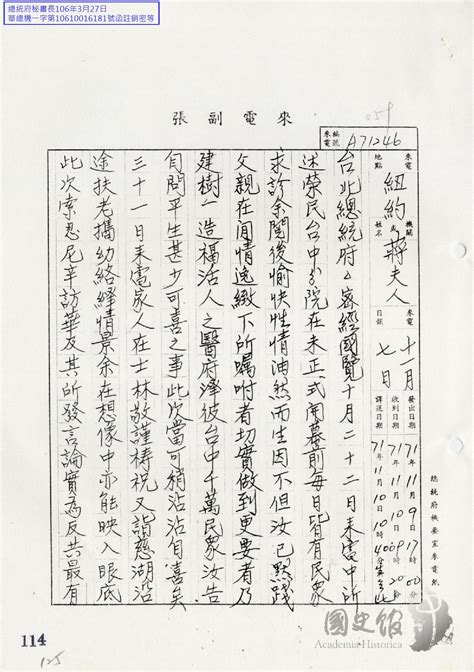 總統府秘書長106年3月27日
華總機一字第10610016181號函註銷密等
來電副張
059
來電編號 A71246
來電地點 紐約
機關或姓名 蔣夫人
來電日期 十一月七日
發出日期 71年11月9日17時00分
收到日期 71年11月10日09時20分
譯送日期 71年11月10日
台北總統府△密經國覽十月二十二日來電中所
述榮民台中分院在未正式開幕前每日皆有民眾
求診余閱後愉快性情油然而生因不但汝已點踐
父親在閒情逸緻下所囑咐者切實做到更要者乃
建樹一造福活人之醫府澤彼台中千萬民眾汝告
自問平生甚少可喜之事此次當可稍沾沾自喜矣
三十一日來電家人在士林敬謹禱祝又詣慈湖沿
途扶老攜幼絡繹情景余在想像中亦能映入眼底
此次索忍尼辛訪華及其所發言論實為反共最有
總統府機要室來電紙
國史館
Academia Historica
114
125